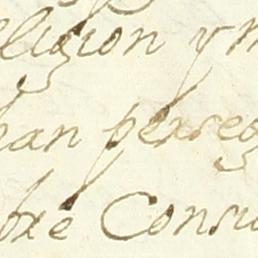 eligion y m
han perseg
bre Consu